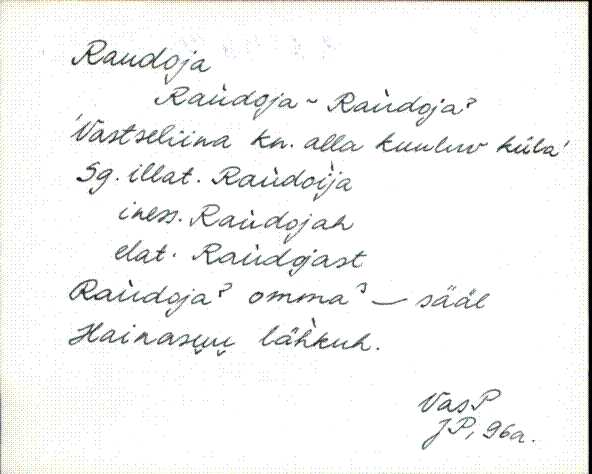 Raudoja
Raùdoja ~ Raùdojaˀ
'Vastseliina kn. alla kuuluv küla'
Sg. illat. Raùdoìja
iness. Raùdojah
elat. Raùdojast
Raùdojaˀ ommaˀ — sääl
Hainasu̬u̬ läh̀kuh.
VasP
JP, 96a.